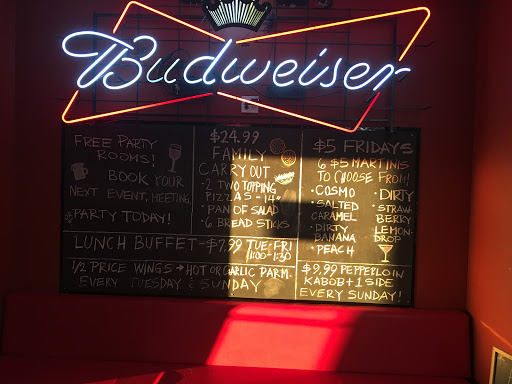 Budweiser
FREE PARTY
ROOMS!
BOOK YOUR
NEXT EVENT, MEETING,
PARTY TODAY!
$24.99
FAMILY
CARRY OUT
• 2 TWO TOPPING
PIZZAS - 14"
• PAN OF SALAD
• 6 BREAD STICKS
$5 FRIDAYS
6 $5 MARTINIS
TO CHOOSE FROM!
• COSMO
• SALTED
CARAMEL
• DIRTY
BANANA
• PEACH
• DIRTY
• STRAW
BERRY
LEMON-
DROP
LUNCH BUFFET - $7.99 TUE-FRI
11:00-1:30
1/2 PRICE WINGS → HOT OR GARLIC PARM.
EVERY TUESDAY & SUNDAY
$9.99 PEPPERLOIN
KABOB + 1 SIDE
EVERY SUNDAY!